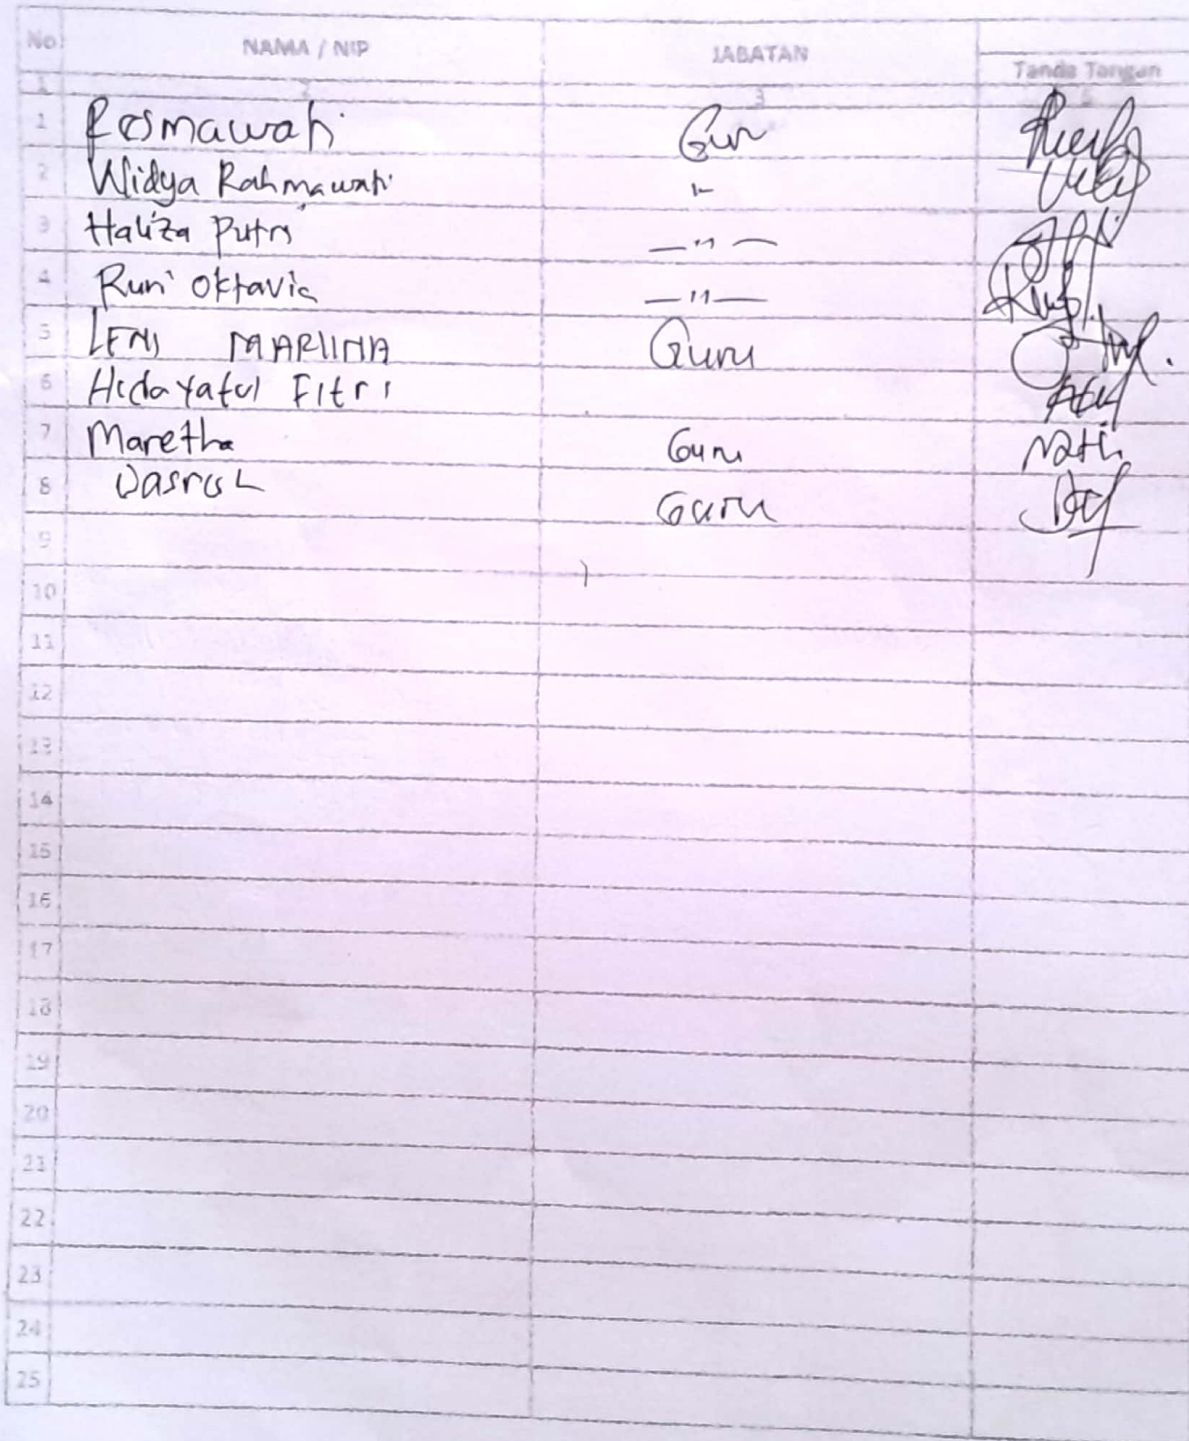 No NAMA / NIP JABATAN
Tanda Tangan
1 2 3
1 Rosmawati Guru
2 Widya Rahmawati
3 Haliza Putri — " —
4 Runi Oktavia — " —
5 LENI MARLINA Guru
6 Hidayatul Fitri
7 Maretha Guru
8 Dasrul Guru
9
10
11
12
13
14
15
16
17
18
19
20
21
22
23
24
25